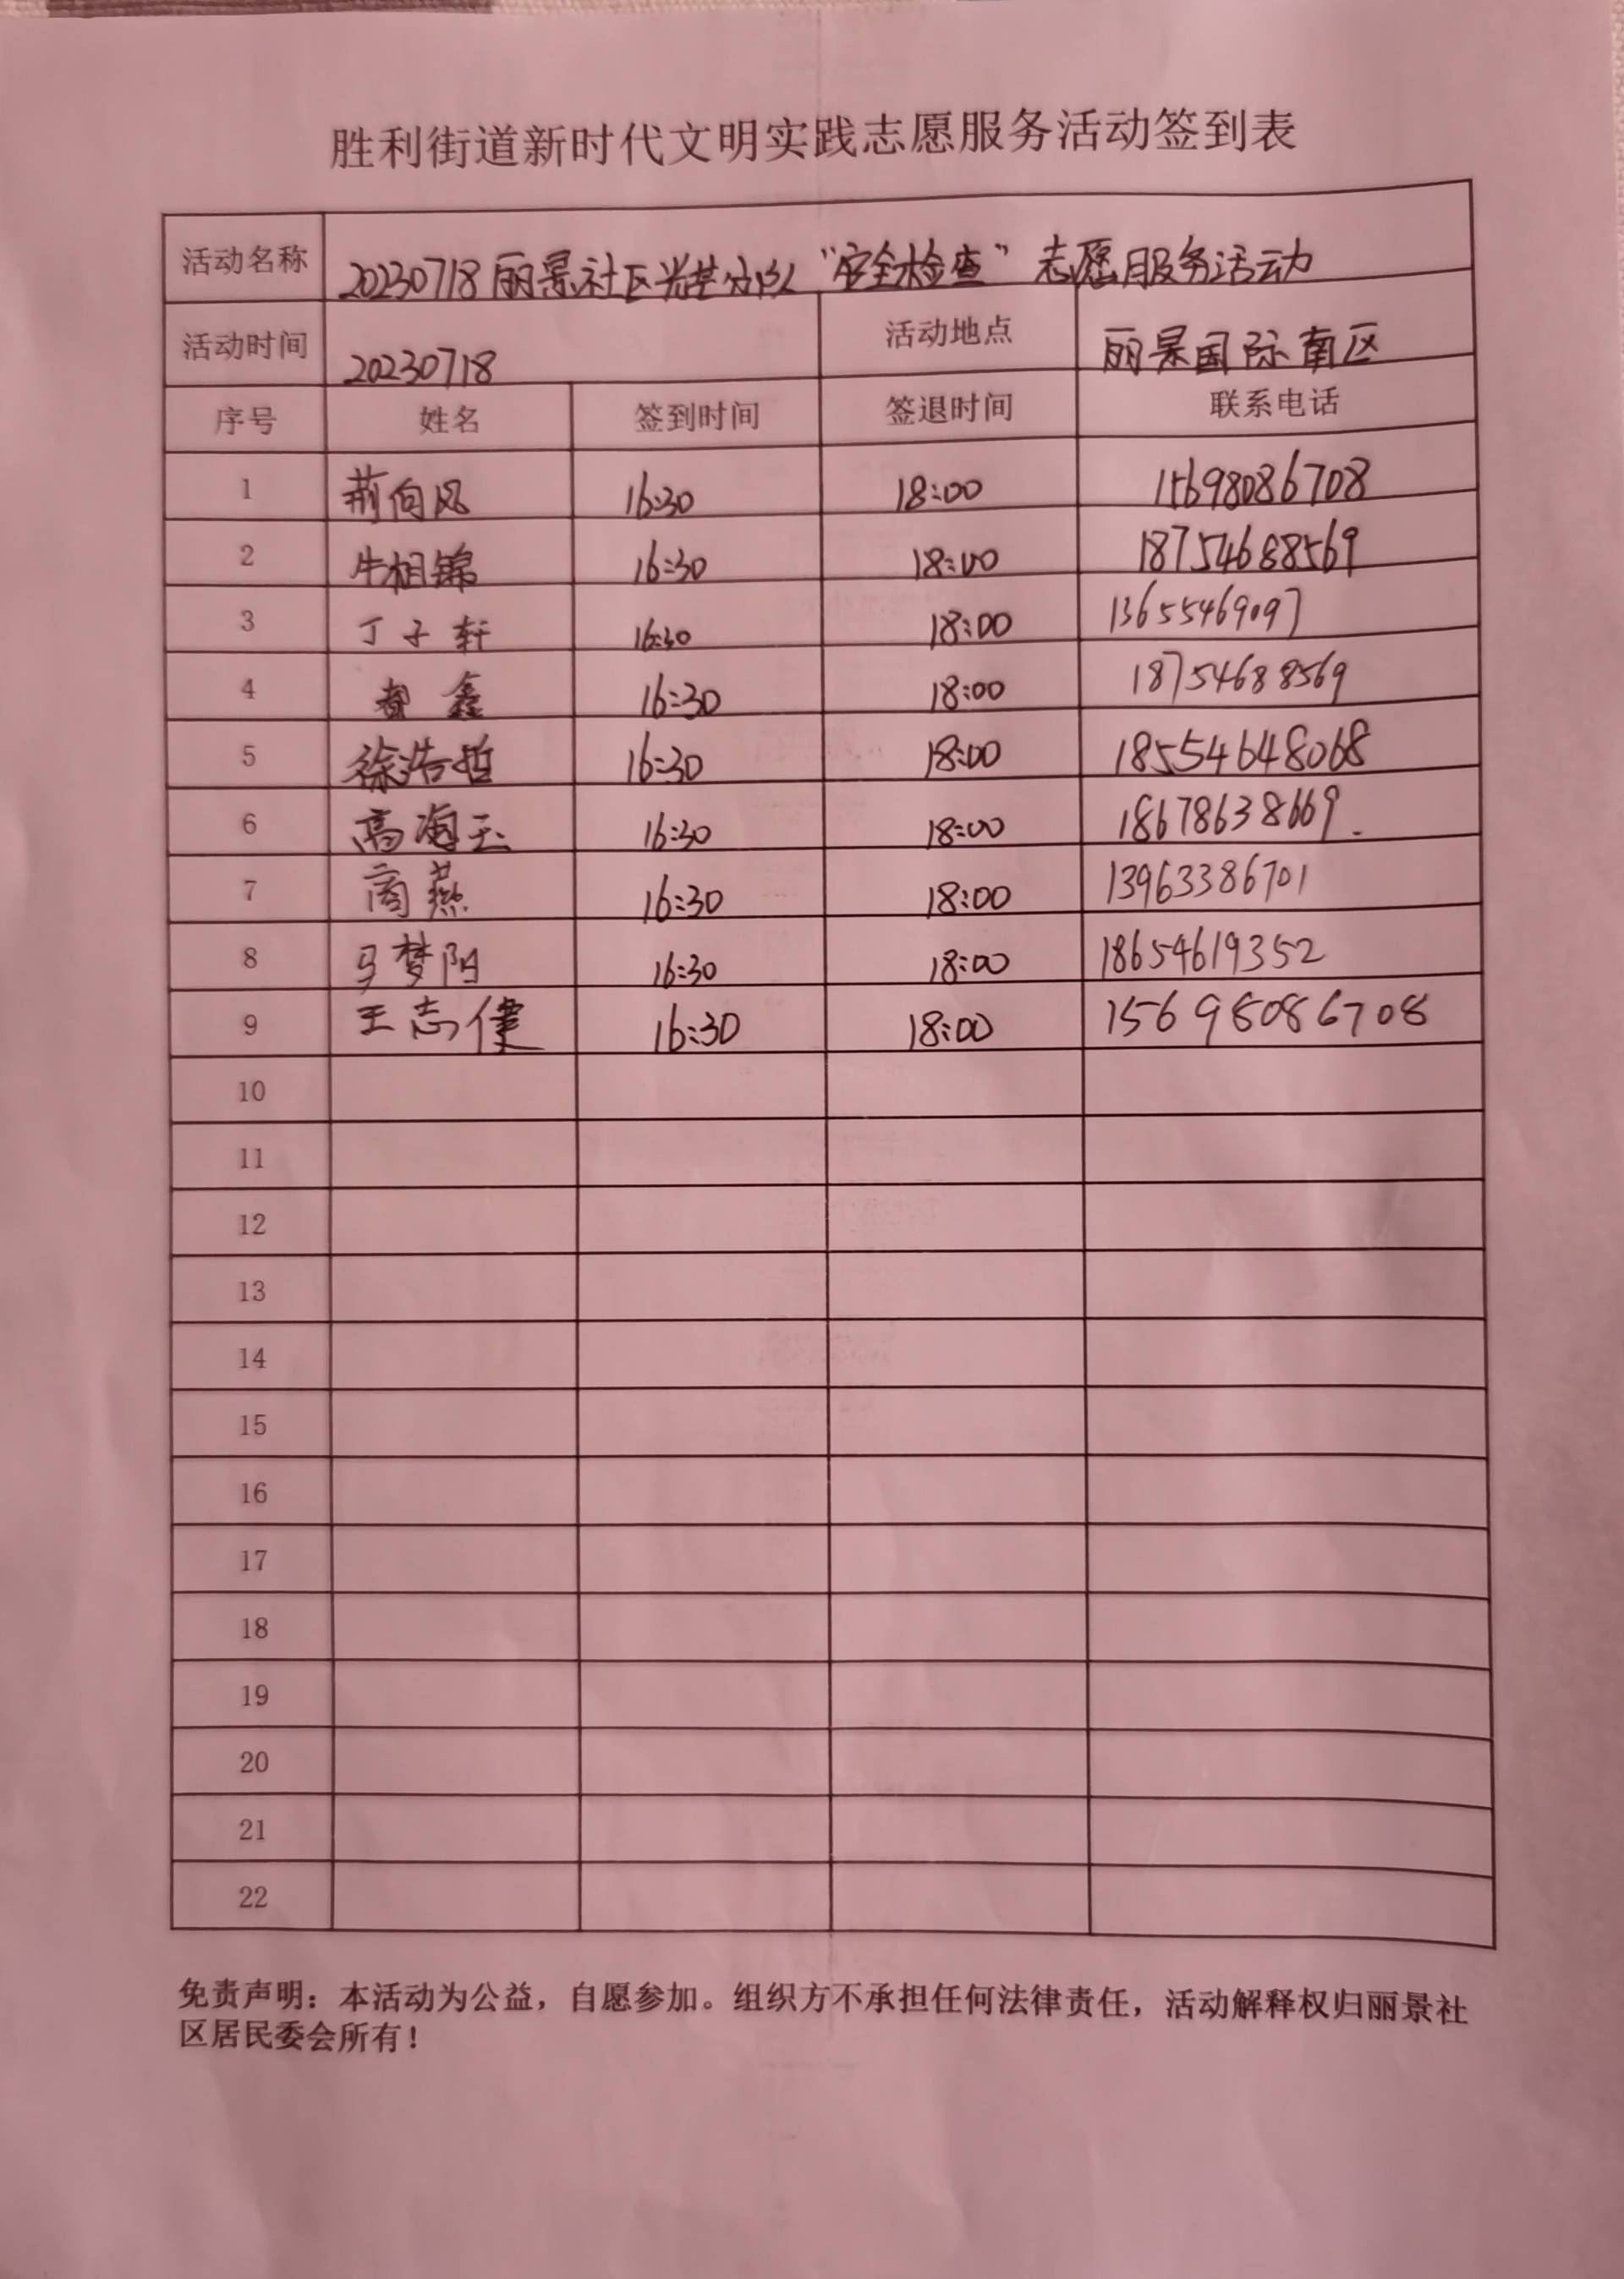 胜利街道新时代文明实践志愿服务活动签到表
活动名称 20230718丽景社区 "安全检查"志愿服务活动
活动时间 20230718 活动地点 丽景国际南区
序号 姓名 签到时间 签退时间 联系电话
1 荆向风 16:30 18:00 15698086708
2 牛相锦 16:30 18:00 18754688569
3 丁子轩 16:30 18:00 13655469097
4 鑫 16:30 18:00 18754688569
5 徐浩哲 16:30 18:00 18554648068
6 高海玉 16:30 18:00 18678638669.
7 商燕 16:30 18:00 13963386701
8 马梦阳 16:30 18:00 18654619352
9 王志健 16:30 18:00 15698086708
10
11
12
13
14
15
16
17
18
19
20
21
22
免责声明：本活动为公益，自愿参加。组织方不承担任何法律责任，活动解释权归丽景社
区居民委会所有！